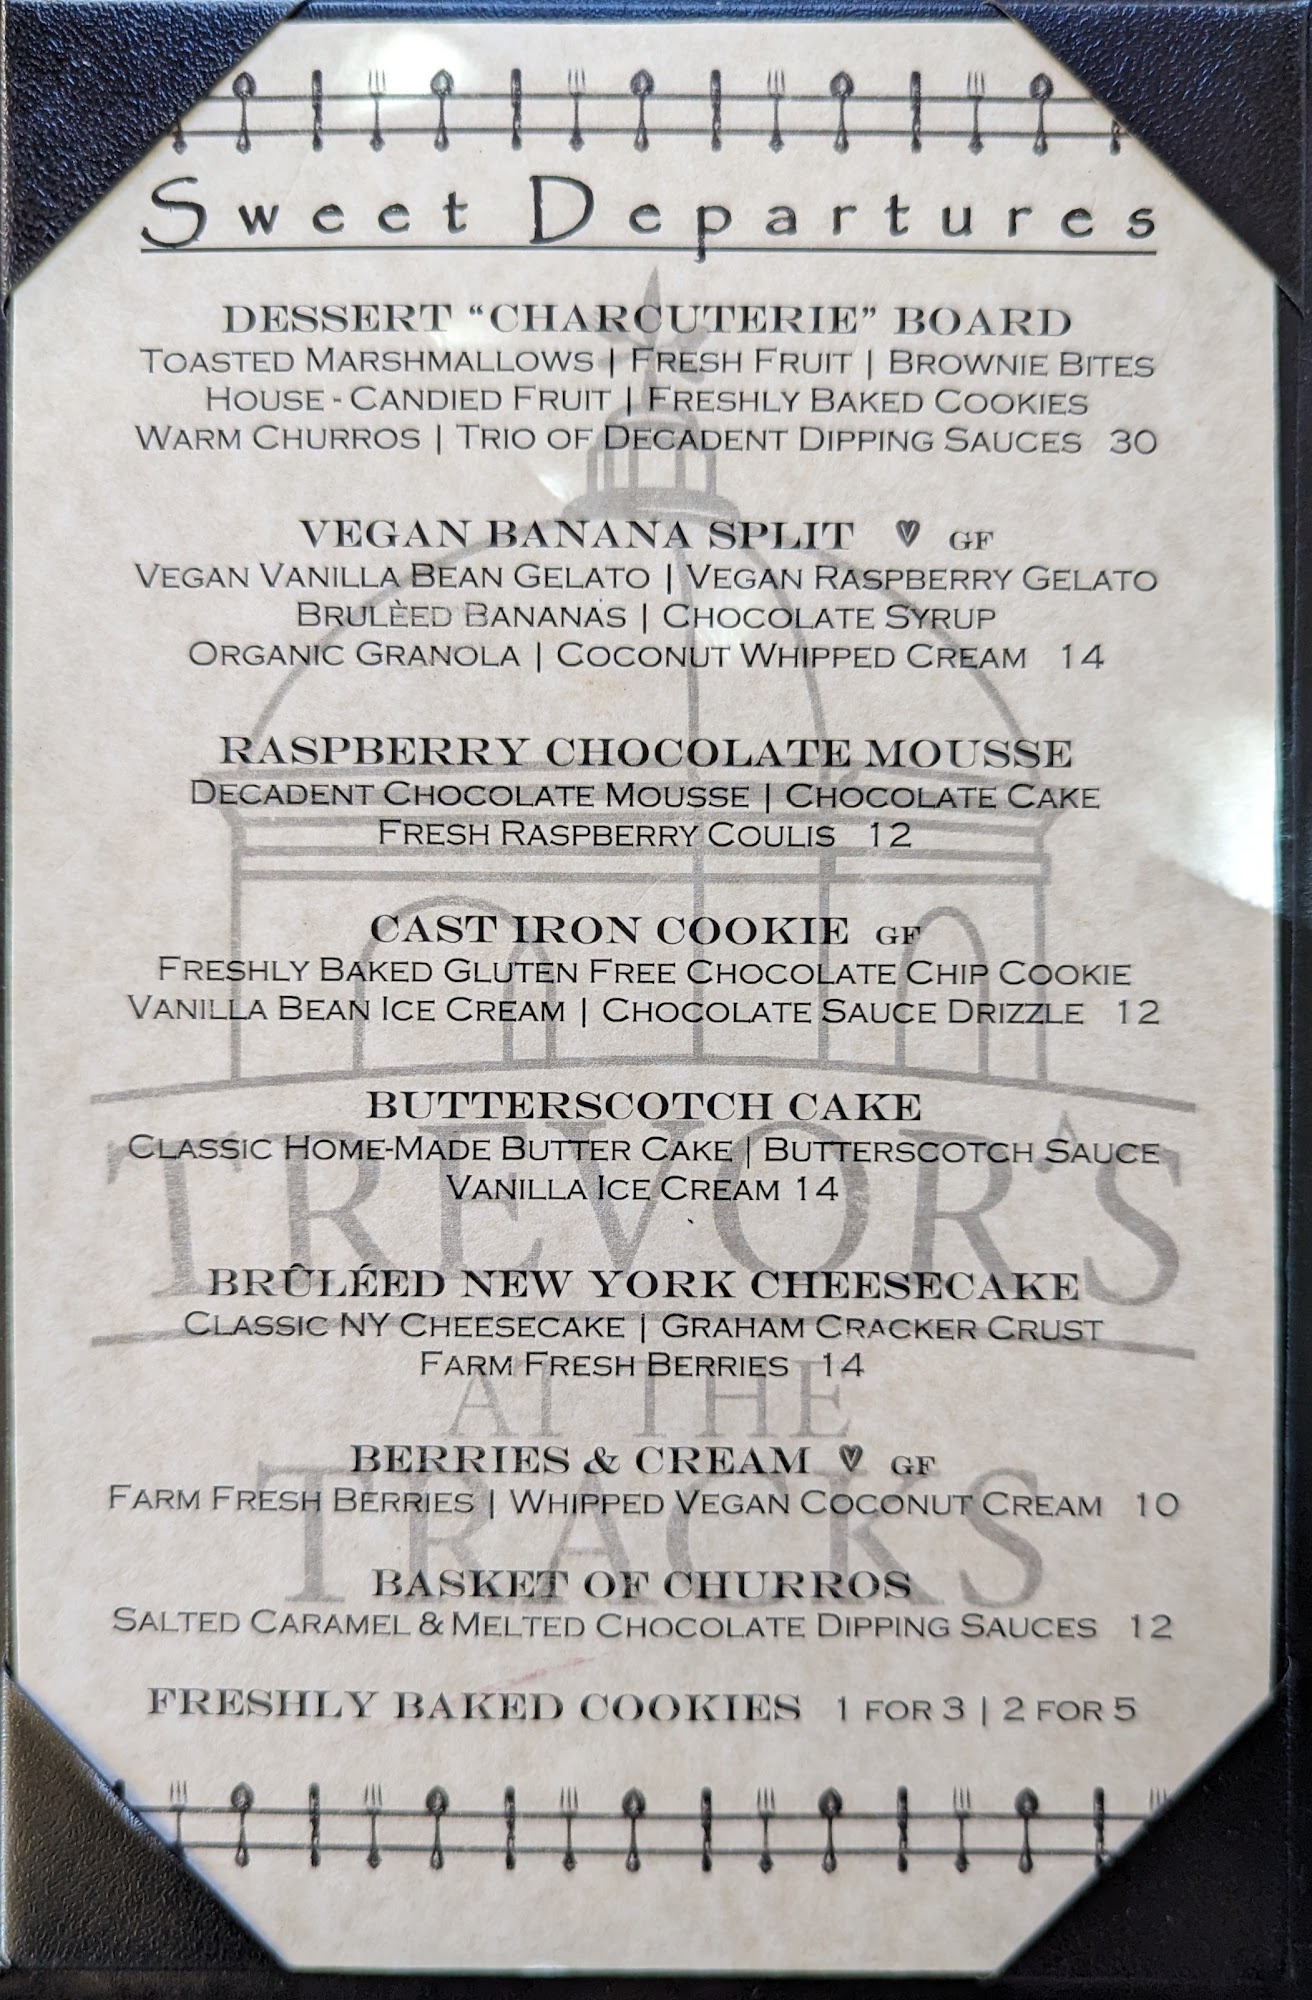 Sweet Departures
DESSERT “CHARCUTERIE” BOARD
TOASTED MARSHMALLOWS | FRESH FRUIT | BROWNIE BITES
HOUSE - CANDIED FRUIT | FRESHLY BAKED COOKIES
WARM CHURROS | TRIO OF DECADENT DIPPING SAUCES 30
VEGAN BANANA SPLIT V GF
VEGAN VANILLA BEAN GELATO | VEGAN RASPBERRY GELATO
BRULÈED BANANAS | CHOCOLATE SYRUP
ORGANIC GRANOLA | COCONUT WHIPPED CREAM 14
RASPBERRY CHOCOLATE MOUSSE
DECADENT CHOCOLATE MOUSSE | CHOCOLATE CAKE
FRESH RASPBERRY COULIS 12
CAST IRON COOKIE GF
FRESHLY BAKED GLUTEN FREE CHOCOLATE CHIP COOKIE
VANILLA BEAN ICE CREAM | CHOCOLATE SAUCE DRIZZLE 12
BUTTERSCOTCH CAKE
CLASSIC HOME-MADE BUTTER CAKE | BUTTERSCOTCH SAUCE
VANILLA ICE CREAM 14
TREVOR'S
BRÛLÉED NEW YORK CHEESECAKE
CLASSIC NY CHEESECAKE | GRAHAM CRACKER CRUST
FARM FRESH BERRIES 14
AT THE
BERRIES & CREAM V GF
FARM FRESH BERRIES | WHIPPED VEGAN COCONUT CREAM 10
TRACKS
BASKET OF CHURROS
SALTED CARAMEL & MELTED CHOCOLATE DIPPING SAUCES 12
FRESHLY BAKED COOKIES 1 FOR 3 | 2 FOR 5